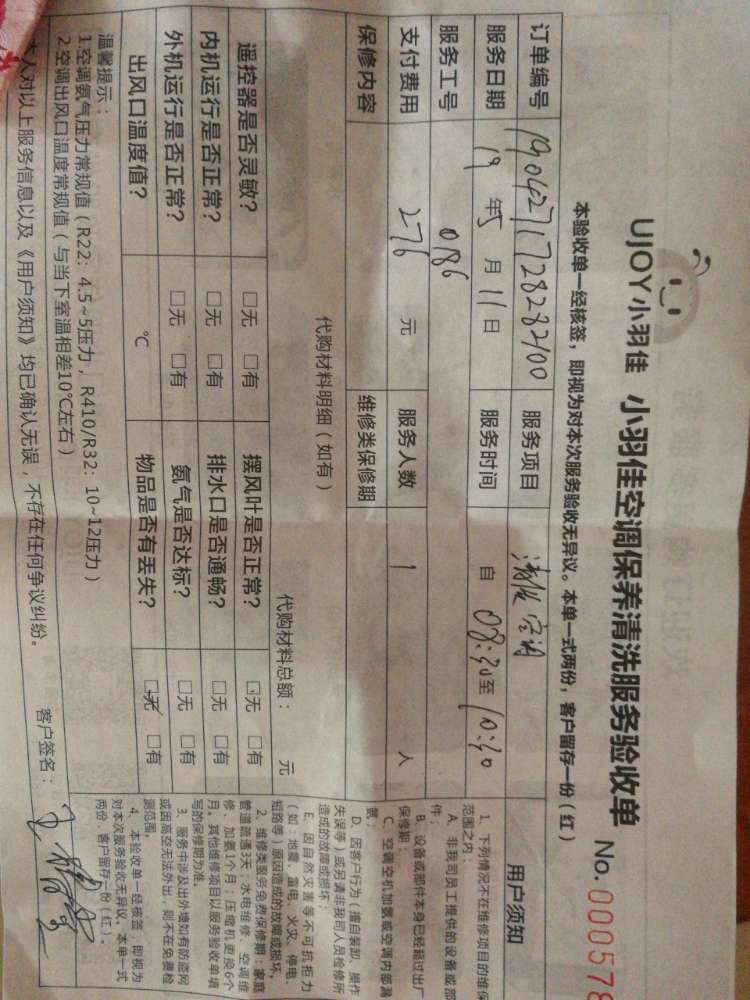 UJOY小羽佳 小羽佳空调保养清洗服务验收单 No.000578
本验收单一经核签，即视为对本次服务验收无异议。本单一式两份，客户留存一份（红）
订单编号 1904271728282100 服务项目 清洗空调
服务日期 19年5月11日 服务时间 自 08:30至 10:30
服务工号 0186
支付费用 276 元 服务人数 1 人
保修内容 维修类保修期
代购材料明细（如有） 代购材料总额： 元
遥控器是否灵敏？ □无 □有 摆风叶是否正常？ □无 □有
内机运行是否正常？ □无 □有 排水口是否通畅？ □无 □有
外机运行是否正常？ □无 □有 氨气是否达标？ □无 □有
出风口温度值？ ℃ 物品是否有丢失？ □无 □有
温馨提示：
1.空调氨气压力常规值（R22：4.5~5压力，R410/R32：10~12压力）
2.空调出风口温度常规值（与当下室温相差10℃左右）
本人对以上服务信息以及《用户须知》均已确认无误，不存在任何争议纠纷。 客户签名：
用户须知
1、下列情况不在维修项目的维保
范围之内：
A、非我司员工提供的设备或部
件；
B、设备或部件本身已经超过出厂
保修期；
C、空调空机加氨或空调内部漏
D、因客户行为（擅自装卸、操作
失误等）或另请非我司人员检修所
造成的故障或损坏；
E、因自然灾害等不可抗拒力
（如：地震、雷电、火灾、停电、
短路等）原因造成的故障或损坏。
2、维修类服务免费保修期：家庭
管道疏通3天；水电维修、空调维
修、加氨1个月；压缩机更换6个
月。其他维修项目以服务验收单填
写的保修期为准。
3、服务中涉及出外墙如有防盗网
或因高空无法外出，则不在免费检
测范围。
4、本验收单一经核签，即视为
对本次服务验收无异议。本单一式
两份，客户留存一份（红）。